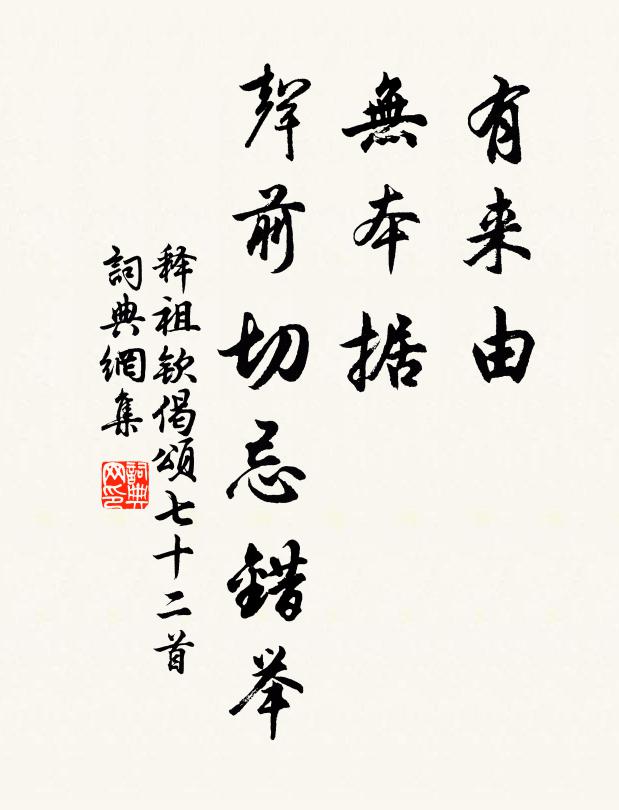 有来由
無本据
聲前切忌錯举
释祖钦偈頌七十二首
詞典網集
詞典网印